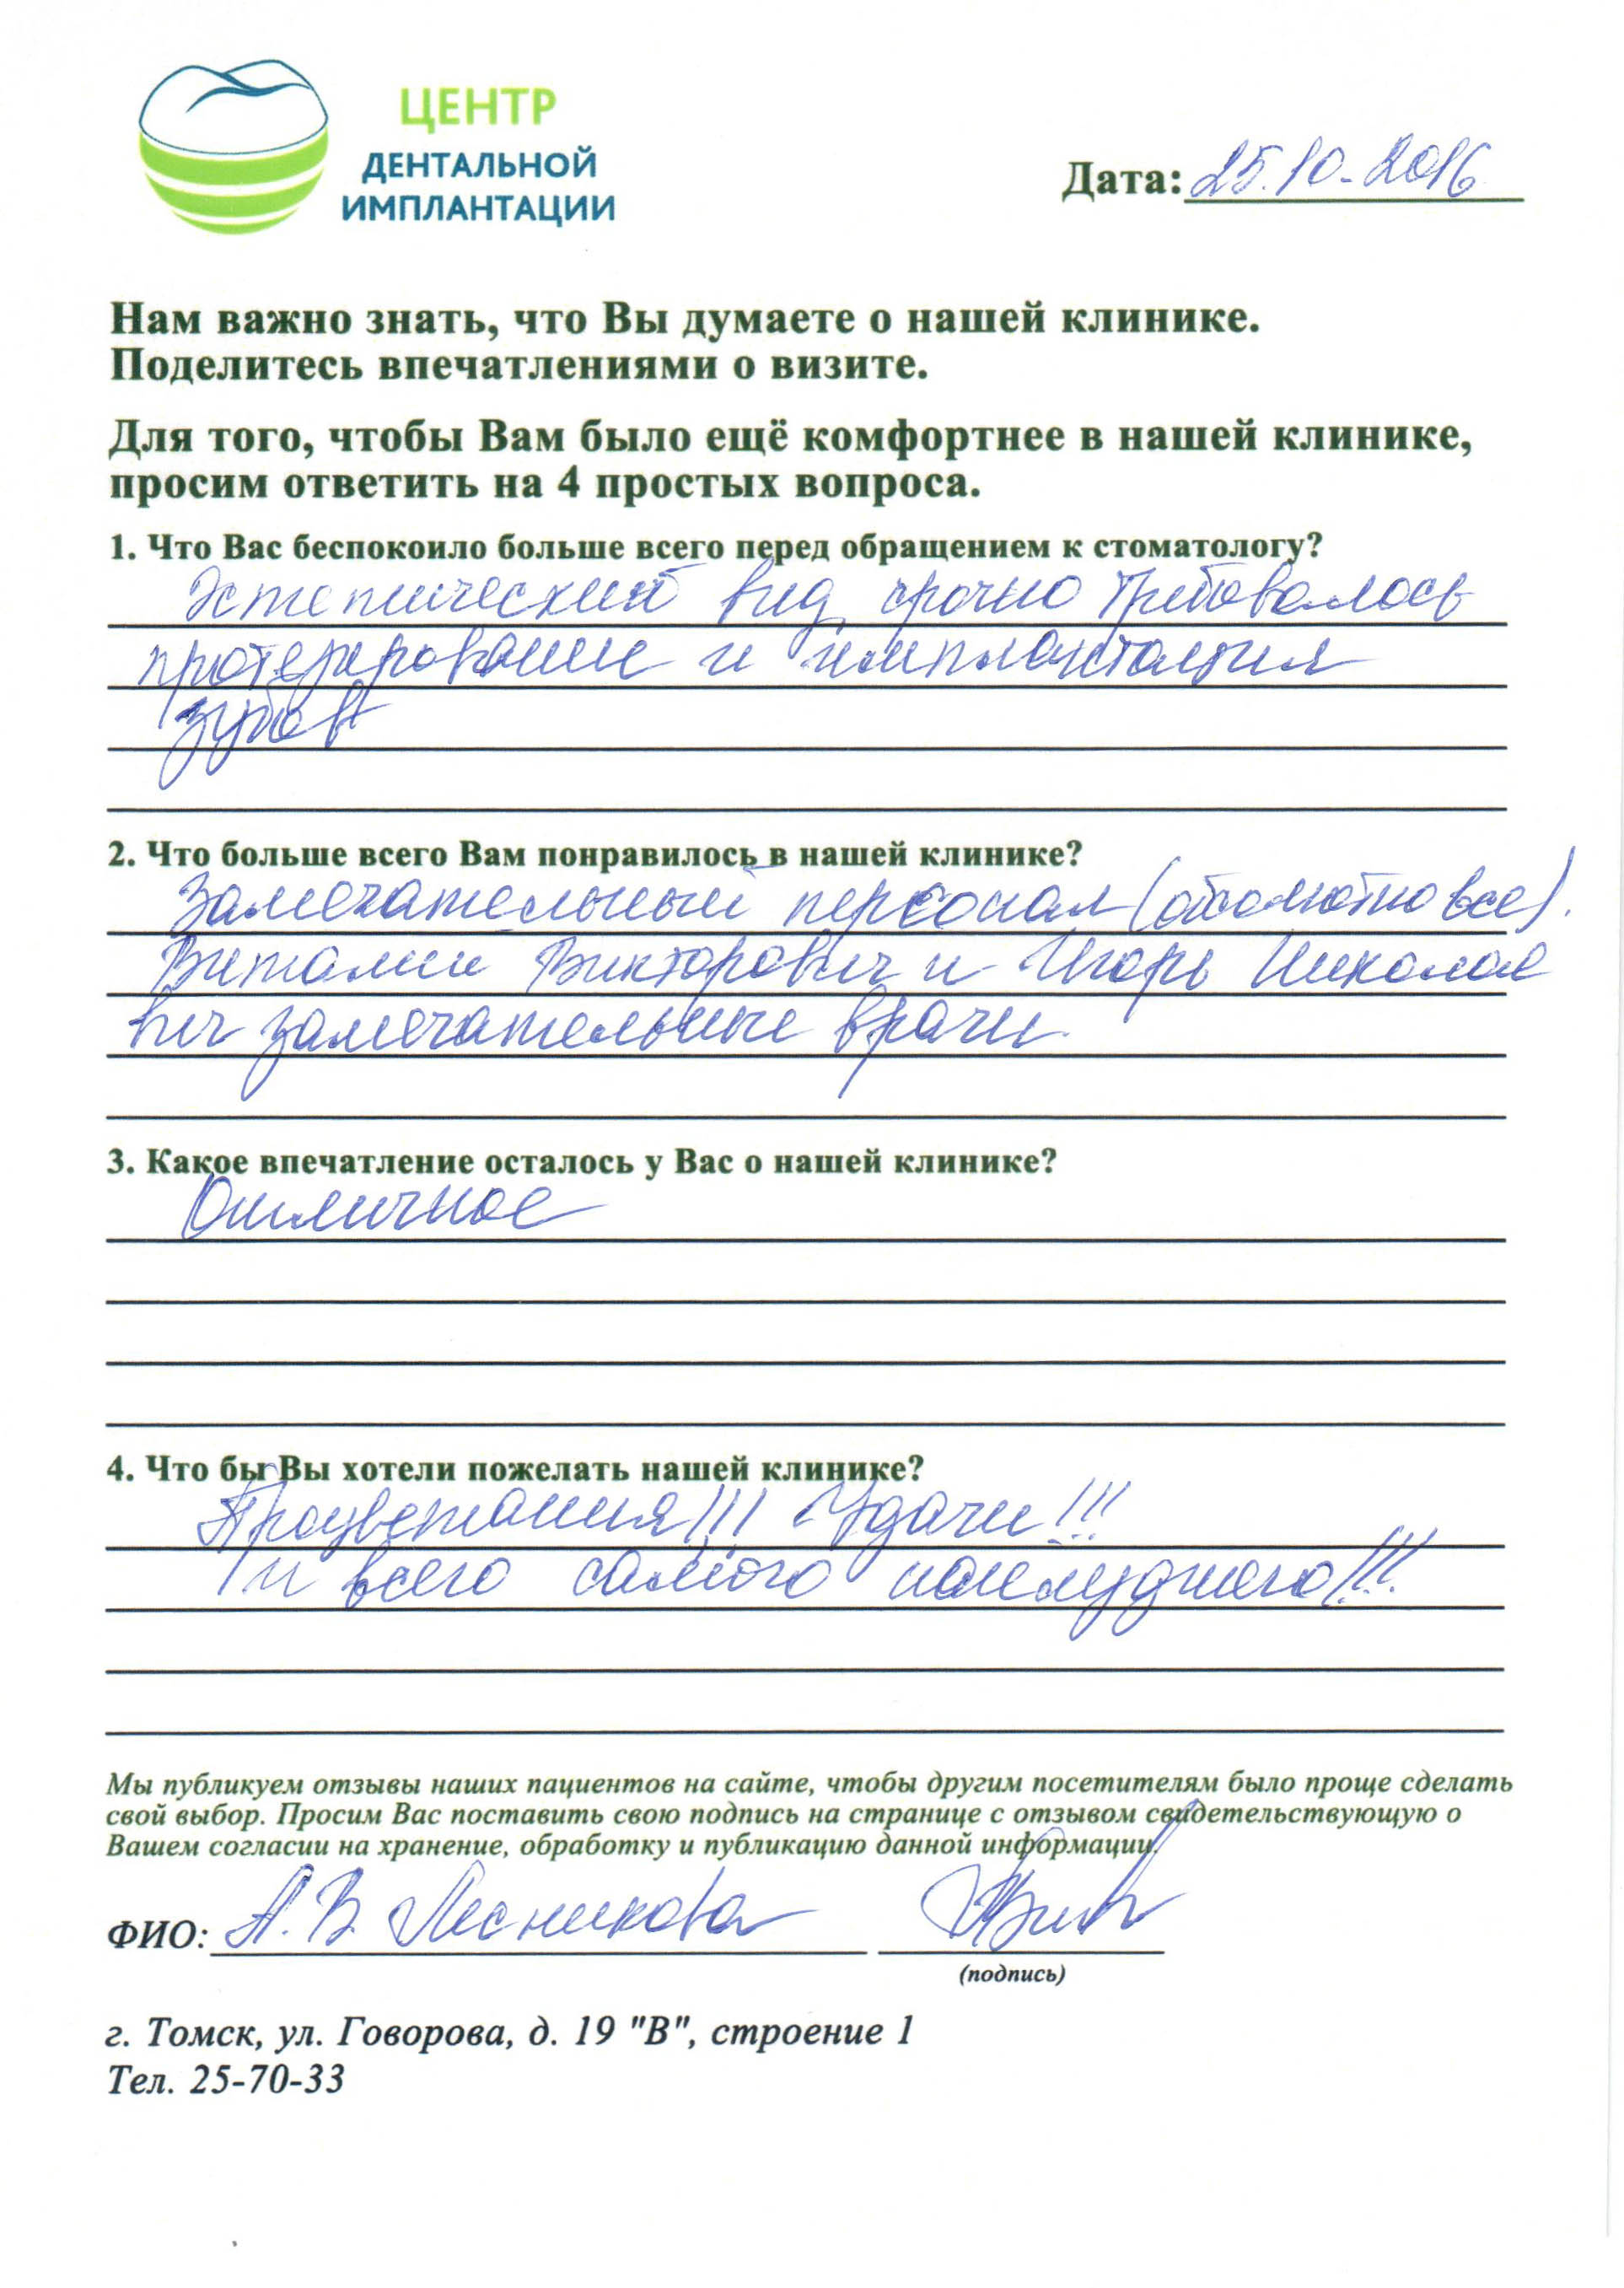 ЦЕНТР
ДЕНТАЛЬНОЙ
ИМПЛАНТАЦИИ
Дата: 25.10.2016
Нам важно знать, что Вы думаете о нашей клинике.
Поделитесь впечатлениями о визите.
Для того, чтобы Вам было ещё комфортнее в нашей клинике,
просим ответить на 4 простых вопроса.
1. Что Вас беспокоило больше всего перед обращением к стоматологу?
Эстетический вид, срочно требовалось
протезирование и имплантация
зубов
2. Что больше всего Вам понравилось в нашей клинике?
Замечательный персонал (абсолютно все).
Виталий Викторович и Игорь Николае
вич замечательные врачи.
3. Какое впечатление осталось у Вас о нашей клинике?
Отличное
4. Что бы Вы хотели пожелать нашей клинике?
Процветания!!! Удачи!!!
и всего самого наилучшего!!!
Мы публикуем отзывы наших пациентов на сайте, чтобы другим посетителям было проще сделать
свой выбор. Просим Вас поставить свою подпись на странице с отзывом свидетельствующую о
Вашем согласии на хранение, обработку и публикацию данной информации.
ФИО: А.В. Лесникова
(подпись)
г. Томск, ул. Говорова, д. 19 "В", строение 1
Тел. 25-70-33